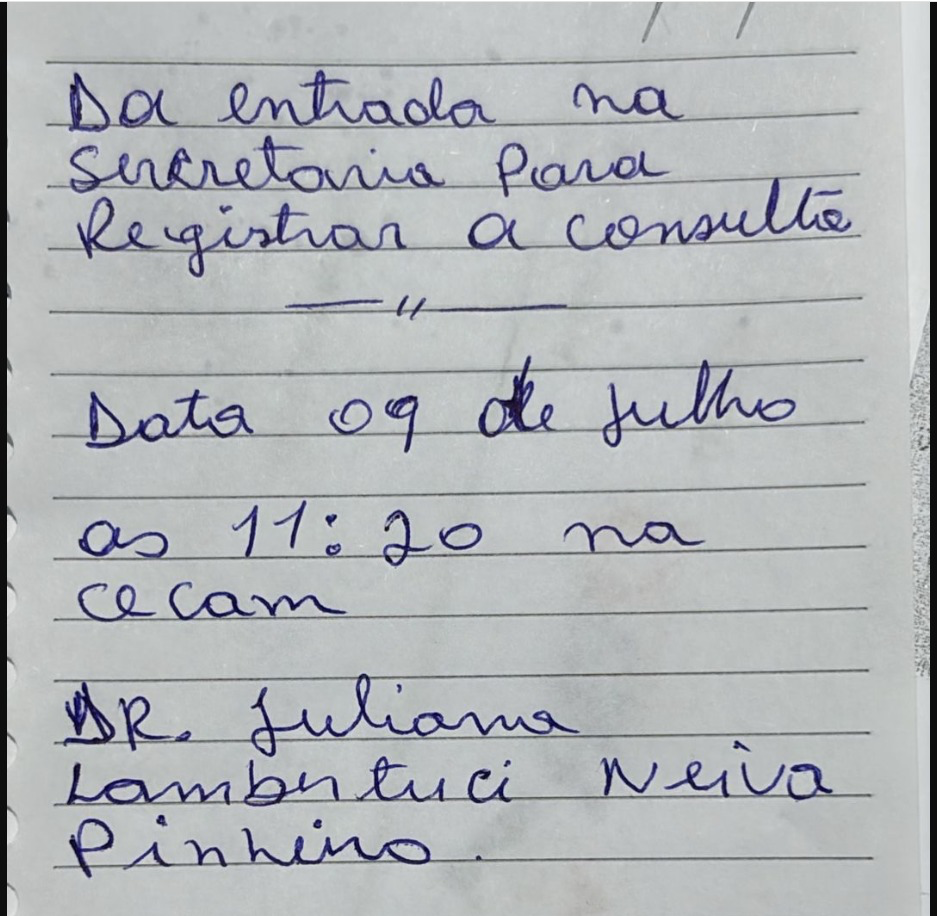 Da entrada na
Sercretaria Para
Registrar a consulta
—— " ——
Data 09 de Julho
as 11:20 na
cecam
DR. Juliana
Lambertuci Neiva
Pinheiro.